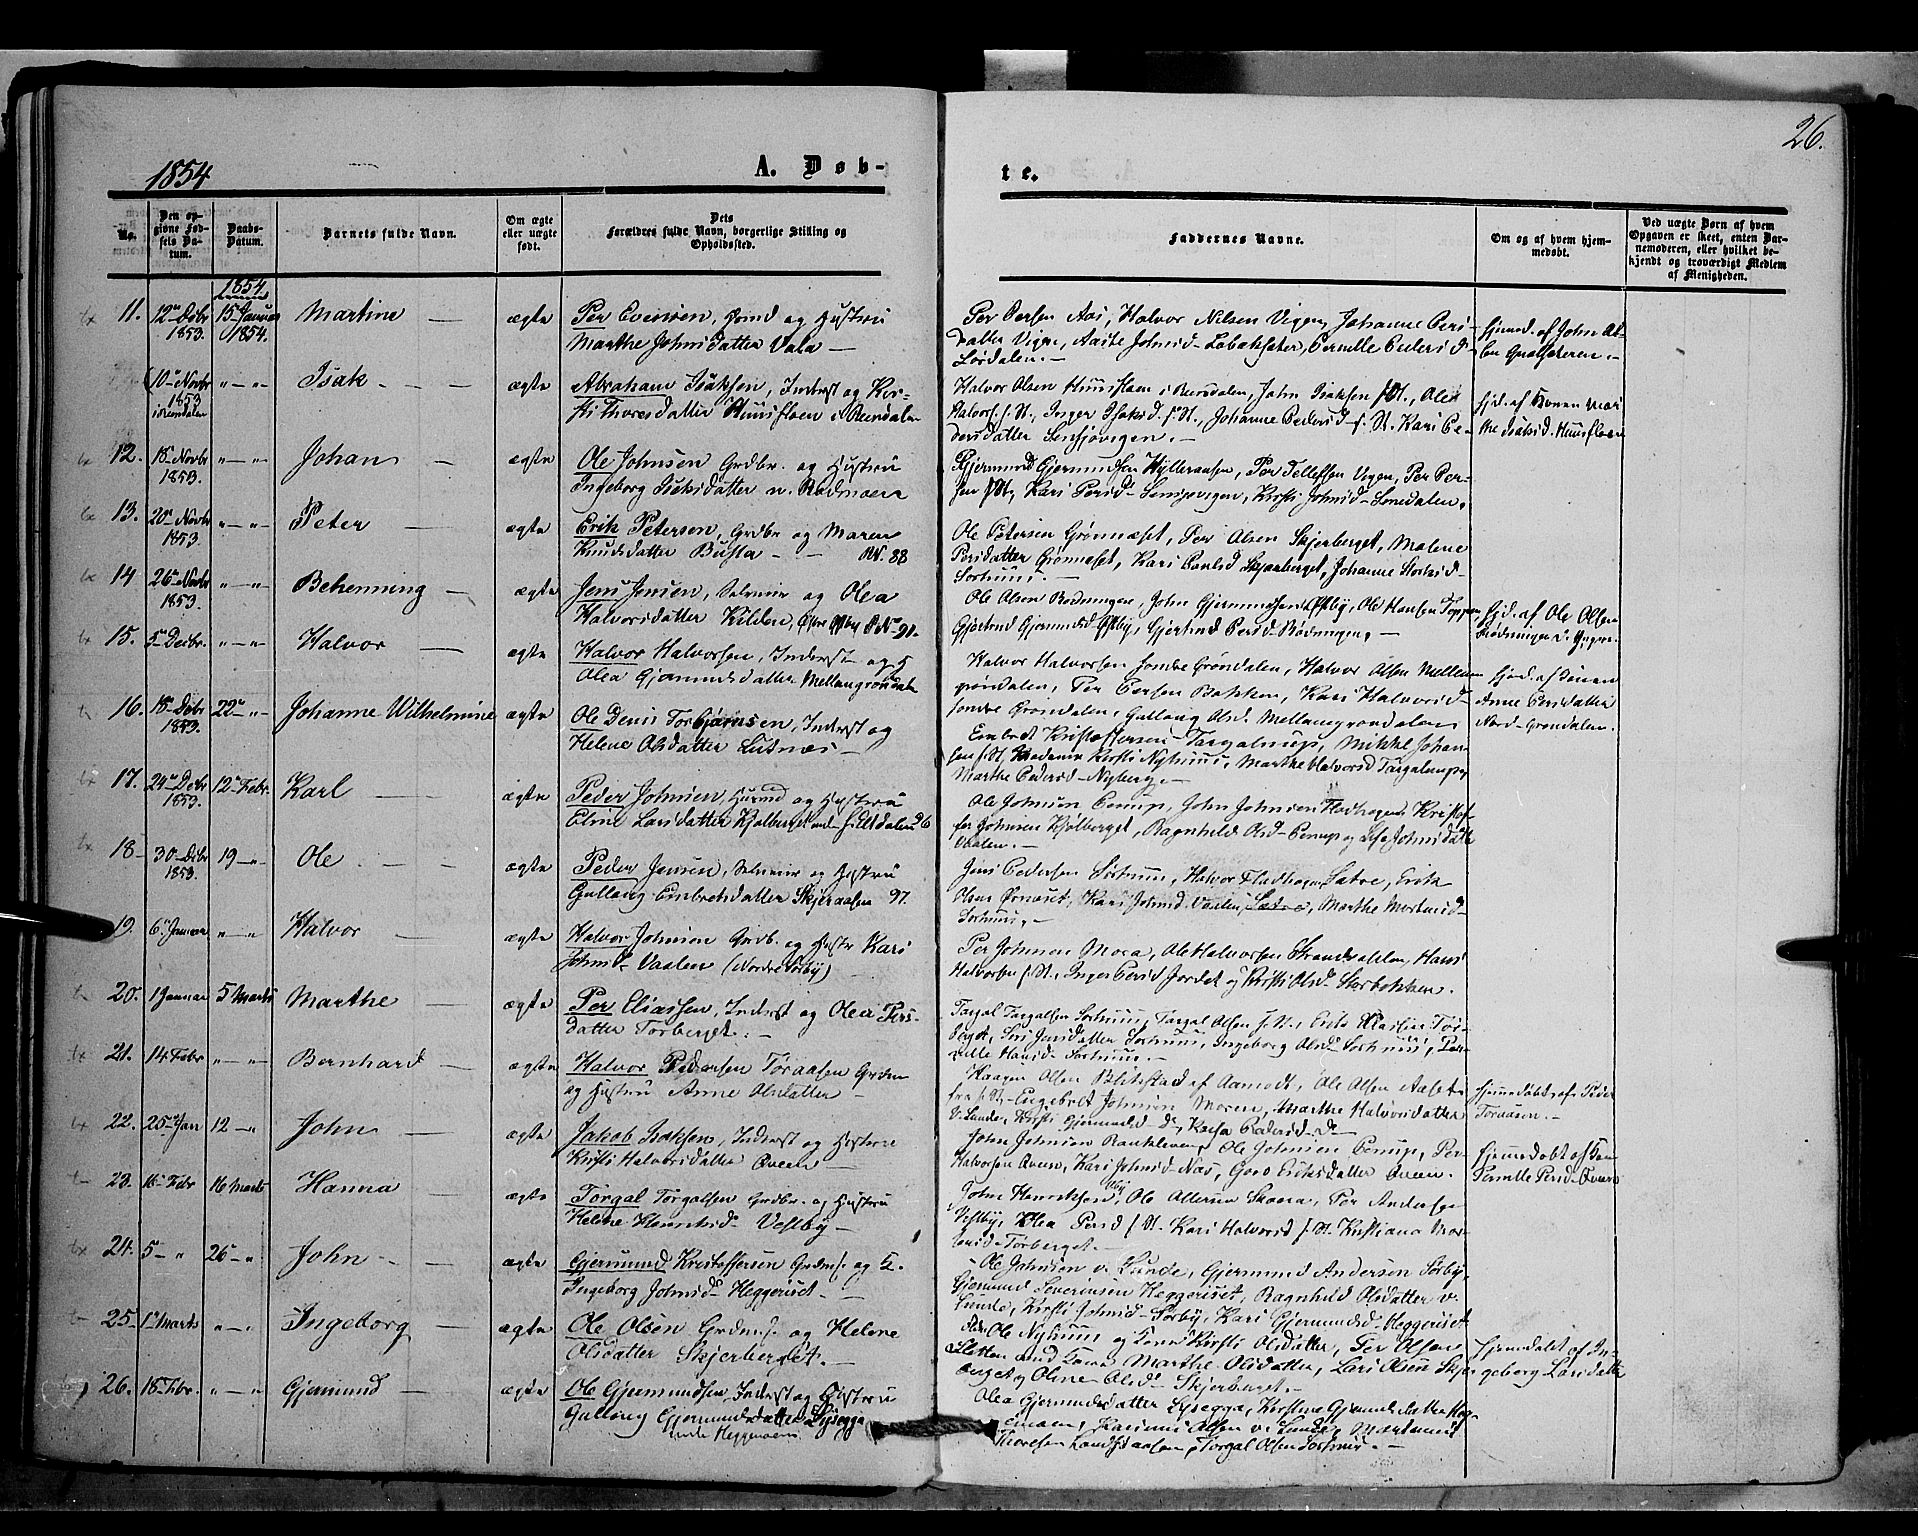 26.
1854
A. Døb-
te.
No.
Den opgivne Fødsels Datum.
Daabs-Datum.
Barnets fulde Navn.
Om ægte eller uægte født.
Dets
Forældres fulde Navn, borgerlige Stilling og Opholdssted.
Faddernes Navne.
Om og af hvem hjemmedøbt.
Ved uægte Børn af hvem Opgaven er skeet, enten Barnemoderen, eller hvilket bekjendt og troværdigt Medlem af Menigheden.
1854
11. 12te Debr 1853. 15 Januar 1854. Martine — ægte Per Evensen, og Hustru
Marthe Johnsdatter Vala —
Per Persen Aas, Halvor Nilsen Vigen, Johanne Pers-
datter Vigen, Aaste Johnsd. Løbaksæter, Pernille Peders d.
Lørdalen. —
hjemd. af John
10de Novbr 1853 i Rendalen " — " — Isak — ægte Abraham Isaksen, Inderst og Kir-
sti Thoresdatter Huusfloen i Rendalen
Halvor Olsen Huusfloen i Rendalen, John Isaksen f. St., Olea
Halvors. f. St., Inger Isaksd. f. St., Johanne Pedersd. f. St. Kari Pe-
dersdatter Sensjøvigen. —
hjd. af Konen Mar-
the Isaksd. Huusfloen
12. 18de Novbr 1853. " — " — Johan — ægte Ole Johnsen Grdbr. og Hustru
Ingeborg Isaksdatter n. Rødmoen
Gjermund Gjermundsen Hylleraasen, Per Tellefsen Vigen, Per Per-
sen f. St, Kari Persd. Sensjøvigen, Kirsti Johnsd. Lønsdalen.
13. 20de Novbr 1853. " — " — Peter — ægte Erik Petersen, Grdbr og Maren
Knudsdatter Busta — — No. 88
Ole Petersen Grønnæset, Per Olsen Skjerberget, Malene
Persdatter Grønnæset, Kari Skjærberget, Johanne
Sorhuus. —
14 26de Novbr 1853. " — " — Behenning — ægte Jens Jensen, Selveier og Olea
Halvorsdatter Kilden, Østby No 91.
Ole Olsen Rødningen, John Gjermundsen Østby, Ole Hansen Toppen
Gjertrud Gjermundsd Østby, Gjertrud Persd. Rødningen. —
hjd. af Ole Olsen
Rødningen
15. 5te Decbr. " — " — Halvor — ægte Halvor Halvorsen, Inderst og H
Olea Gjermundsdatter Mellangrøndal
Halvor Halvorsen søndre Grøndalen, Halvor Olsen Mellem-
grøndalen, Per Persen Bakken, Kari Halvorsd.
søndre Grøndalen, Gullaug Olsd. Mellangrøndalen
hjd. af Konen
Anne Persdatter
Nord-Grøndalen.
16. 18de Debr 1853. 22de — " — Johanne Wilhelmine ægte Ole Denis Torbjørnsen, Inderst og
Helene Olsdatter Lutnæs —
Embret Kristoffersen Targalrup, Mikkel Johan-
sen f. St, Kirsti Nyhuus, Marthe Halvorsd Targalrup,
Marthe Pedersd. Nyberg. —
17. 24de Debr 1853. 12te Febr. Karl — — ægte Peder Johnsen, Husmd og Hustru
Eline Larsdatter Kjølberget 96
Ole Johnsen Perup, John Johnsen Fladhagen, Kristof-
fer Johnsen Kjølberget, Ragnhild Olsd. Perup og Johnsdatter
18 — 30 — Debr 1853. 19 — " Ole — — ægte Peder Jensen, Selveier og Hustru
Gullaug Embretsdatter Skjeraasen 97.
Jens Pedersen Sørhuus, Halvor Fladhagen Sætre, Erik
Olsen Ørnæset, Kari Johnsd. Vaalen, Sætre, Marthe Mortensd.
Sørhuus. —
19. 6te Januar " — " Halvor — ægte Halvor Johnsen Grdb. og Hustr Kari
Johnsd. Vaalen (Nordre Sørby)
Per Johnsen Moen, Ole Halvorsen Strandvolden, Hans
Halvorsen f. St., Inger Persd Jordet og Kirsti Olsd. Storbækken.
20. 1 Januar 5 Marts Marthe — ægte Per Eliassen, Inderst og Olea Pers-
datter Torberget. —
Targal Targalsen Sørhuus, Targal Olsen f. St., Tor-
berget, Siri Jensdatter Sørhuus, Ingeborg Olsd. Sørhuus, Per-
nille Hansd. Sørhuus. —
21. 14 Febr " — " — Bernhard — ægte Halvor Pedersen Toraasen Grdm
og Hustru Anne Olsdatter —
Haagen Olsen af Aamodt, Ole Olsen
fra f. St, Engebret Johnsen Moren, Marthe Halvorsdatter
v. Lunde, Kirsti Gjermundsd. d, Karen Pedersd. d —
hjemmedøbt af Peder
Toraasen. —
22. 25de Jan 12 — " John — ægte Jakob Isaksen, Inderst og Hustrue
Kirsti Halvorsdatter Øveren —
John Johnsen Ranklev, Ole Johnsen Perup, Per
Halvorsen Øveren, Kari Johnsd. Næs, Goro Eriksdatter Øveren. —
Hjemmedøbt af
Pernille Persd. Øveren
23. 16 Febr 16 Marts Hanna — ægte Torgal Torgalsen Grdbr. og Hustru
Helene Henriksd. Vestby —
John Henriksen, Ole Skoren, Per Andersen
Vestby, Olea Persd f. St. Kari Halvorsd f. St. Kristiane
Torberget. —
24. 5 — " 26 — " John — — ægte Gjermund Kristoffersen Grdm. og H.
Ingeborg Johnsd. Heggeriset. —
Ole Johnsen v. Lunde, Gjermund Andersen Sørby,
Gjermund Severinsen Heggeriset, Ragnhild Olsdatter v.
Lunde, Kirsti Johnsd. Sørby, Kari Gjermundsd. Heggeriset
25 — 1te Marts " — " Ingeborg — ægte Ole Olsen Grdm. og Helene
Olsdatter Skjerberget. —
Ole Nyhuus og Kone Kirsti Olsdatter, Per Olsen
Sletten med Kone Marthe Olsdatter, Lars Olsen Skjer-
berget og Oline Olsd. Skjerberget. —
Hjemmedøbt af In-
geborg Larsdatter
26. 18 Febr. " — " Gjermund — ægte Ole Gjermundsen, Inderst og Hustru
Gullaug Gjermundsdatter Lysegga
Heggemoen
Olea Gjermundsdatter Lysegga, Kirstine Gjermundsdatter Heg-
gemoen, Olsen v. Lunde, Mortinus
Thoresen Landsraasen, Torgal Olsen Sørhuus. —